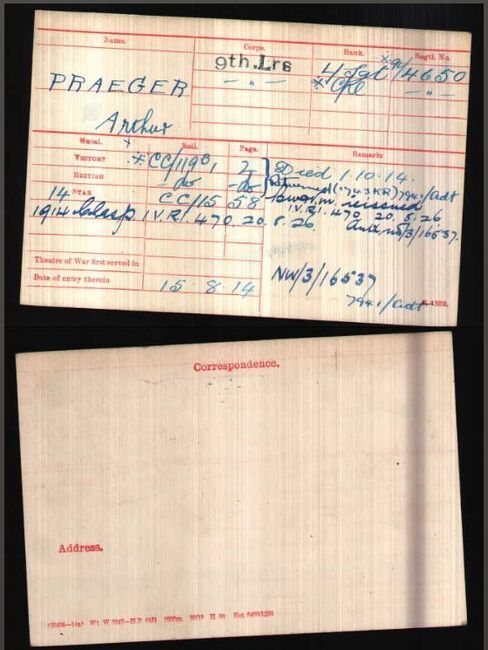 Name. Corps. Rank. Regtl. No.
PRAEGER 9th.Lrs L/Sgt 4650
— " — x Cpl — " —
Arthur
Medal. Roll. Page. Remarks
VICTORY x CC/1190 2 Died 1.10.14.
BRITISH - do - - do - Returned (1743KR) 794.1/Adt
14 STAR CC/15 58 reissued
1914 Clasp I.V.R/ 470 20.8.26. I.V.R/. 470 20.8.26
NW/3/16537.
Theatre of War first served in
Date of entry therein 15.8.14 NW/3/16537
794.1/Adt K.1380.
Correspondence.
Address.